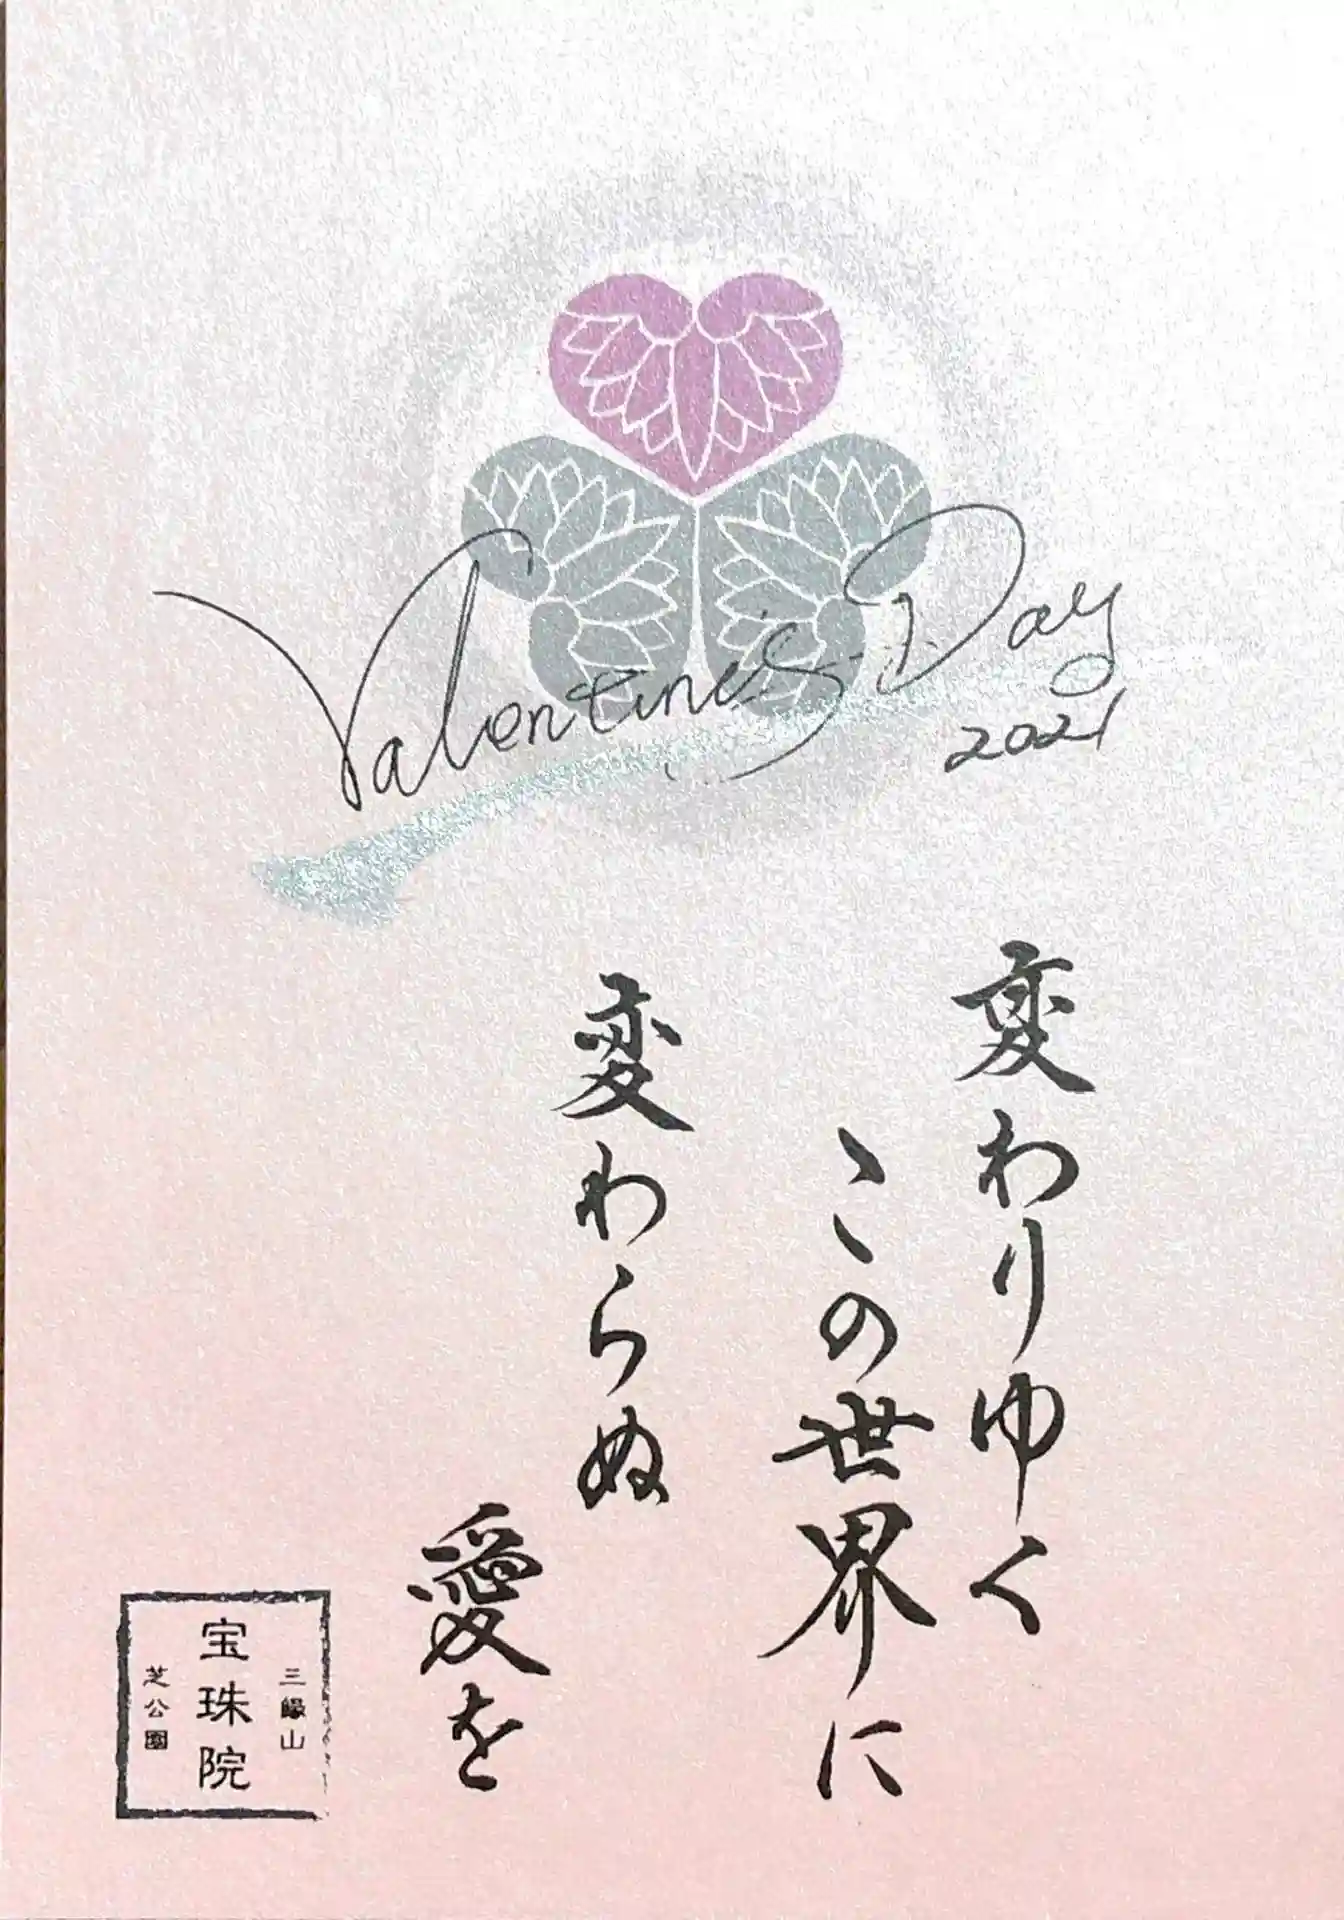 Valentine's Day
2021
変わりゆく
この世界に
変わらぬ
愛を
三縁山
宝珠院
芝公園